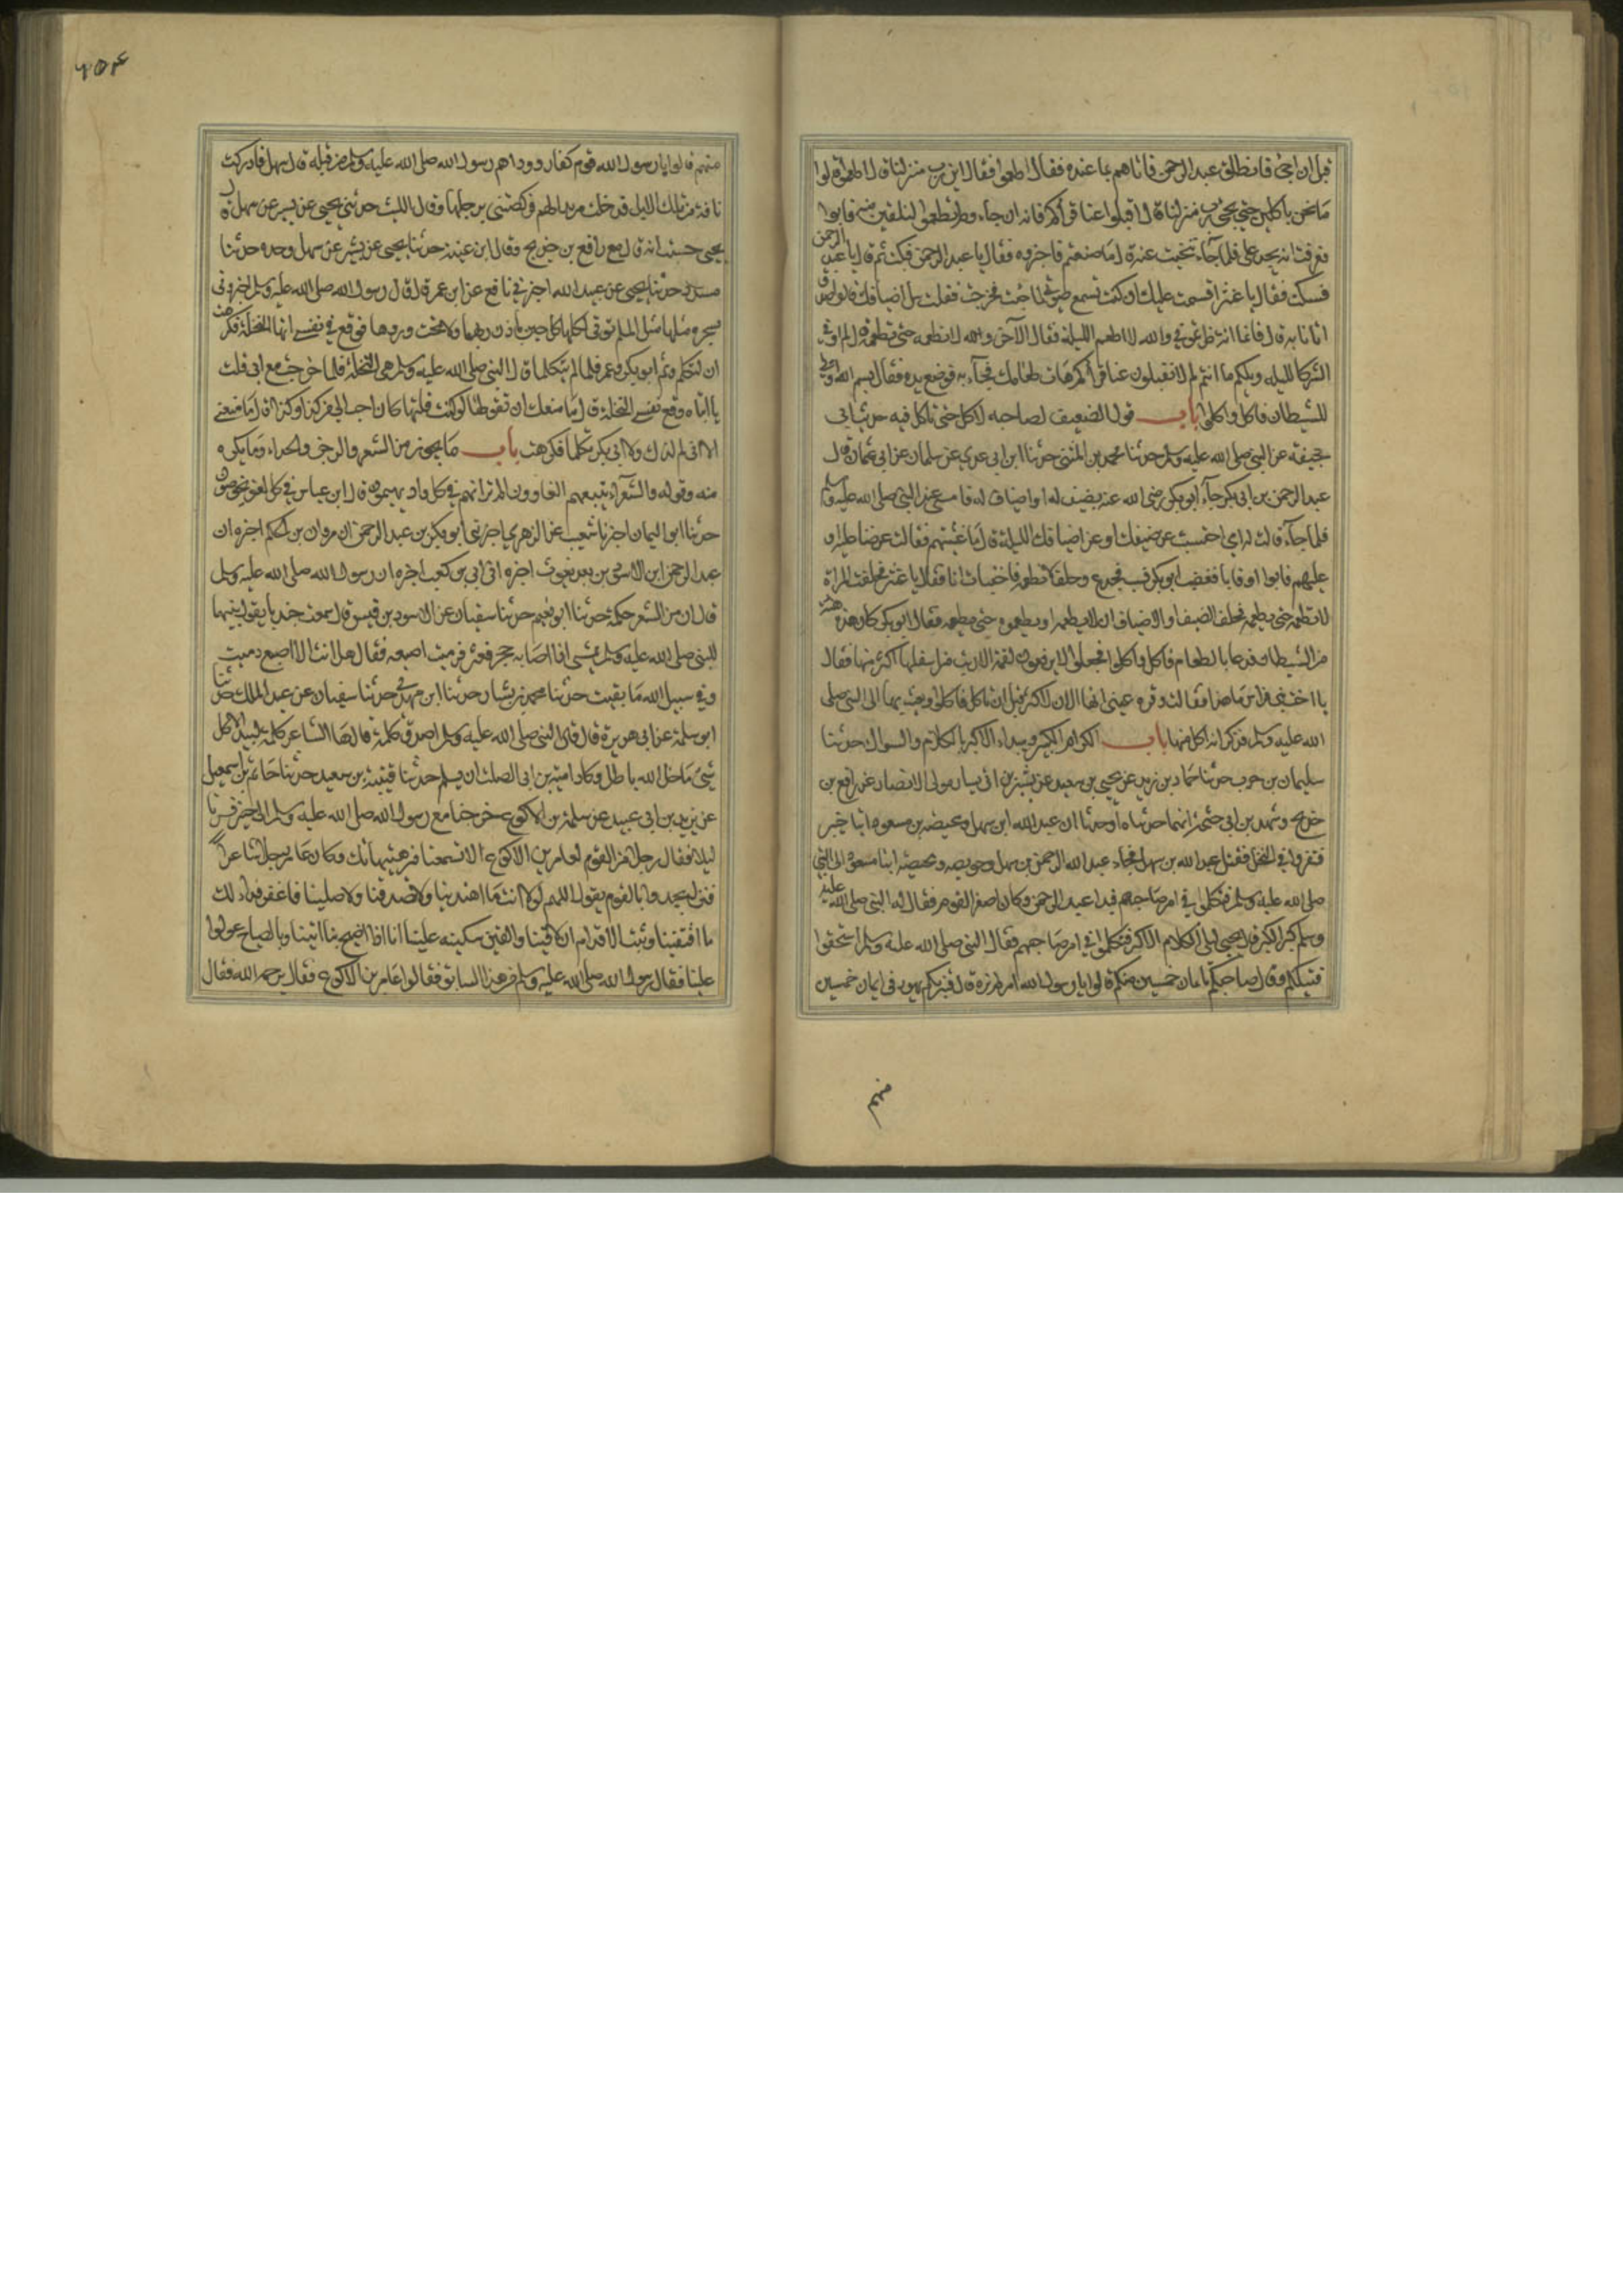 قبل ان اجئ فانطلق عبد الرحمن فاتاهم بما عنده فقال اطعموا فقالوا اين رب منزلنا قال اطعموا قالوا
ما نحن باكلين حتى يجئ رب منزلنا قال اقبلوا عنا قراكم فانه ان جاء ولم تطعموا لنلقين منه فابوا
فعرفت انه يجد على فلما جاء تنحيت عنه قال ما صنعتم فاخبروه فقال يا عبد الرحمن فسكت ثم قال يا عبد الرحمن
فسكت فقال يا غنثر اقسمت عليك ان كنت تسمع صوتى لما جئت فخرجت فقلت سل اضيافك قالوا صدق
اتانا به قال فانما انتظرتمونى والله لا اطعم الليلة فقال الآخرون والله لا نطعمه حتى تطعمه قال لم ار فى
الشر كالليلة ويلكم ما انتم لم لا تقبلون عنا قراكم هات طعامك فجآء به فوضع يده فقال بسم الله الاولى
للشيطان فاكل واكلوا باب قول الضعيف لصاحبه لا اكل حتى تاكل فيه حديث ابى
جحيفة عن النبى صلى الله عليه وسلم حدثنا محمد بن المثنى حدثنا ابن ابى عدى عن سلمان عن ابى عثمان قال
عبد الرحمن بن ابى بكر جآء ابو بكر رضى الله عنه بضيف له او اضياف له فامسى عند النبى صلى الله عليه وسلم
فلما جآء قالت له امى احتبست عن ضيفك او عن اضيافك الليلة قال ما عشيتهم فقالت عرضنا عليه او
عليهم فابوا او فابا فغضب ابو بكر فسب فجدع وحلف لا نطعمه فاختبات انا فقال يا غنثر فحلفت المراة
لا تطعمه حتى يطعمه فحلف الضيف او الاضياف ان لا يطعمه او يطعموه حتى يطعمه فقال ابو بكر كان هذه
من الشيطان فدعا بالطعام فاكل واكلوا فجعلوا لا يرفعون لقمة الا ربت من اسفلها اكثر منها فقال
يا اخت بنى فراس ما هذا فقالت وقرة عينى انها الان لاكثر قبل ان ناكل فاكلوا وبعث بها الى النبى صلى
الله عليه وسلم فذكر انه اكل منها باب اكرام الكبير ويبداء الاكبر بالكلام والسوال حدثنا
سليمان بن حرب حدثنا حماد بن زيد عن يحيى بن سعيد عن بشير بن يسار مولى الانصار عن رافع بن
خديج وسهل بن ابى حثمة انهما حدثاه او حدثا ان عبد الله ابن سهل ومحيصة بن مسعود اتيا خيبر
فتفرقا فى النخل فقتل عبد الله بن سهل فجاء عبد الرحمن بن سهل وحويصه ومحيصة ابنا مسعود الى النبى
صلى الله عليه وسلم فتكلموا فى امر صاحبهم فبدا عبد الرحمن وكان اصغر القوم فقال له النبى صلى الله عليه
وسلم كبر الكبر قال يحيى ليلى الكلام الاكبر فتكلموا فى امر صاحبهم فقال النبى صلى الله عليه وسلم استحقوا
قتيلكم وقال صاحبكم بايمان خمسين منكم قالوا يا رسول الله امر لم نره قال فتبرئكم يهود فى ايمان خمسين
منهم
٦٥٤
منهم قالوا يا رسول الله قوم كفار فوداهم رسول الله صلى الله عليه وسلم من قبله قال سهل فادركت
ناقة من تلك الابل فدخلت مربدا لهم فركضتنى برجلها وقال الليث حدثنى يحيى عن بشير عن سهل قال
يحيى حسبت انه قال مع رافع بن خديج وقال ابن عيينة حدثنا يحيى عن بشير عن سهل وحده حدثنا
مسدد حدثنا يحيى عن عبيد الله اخبرنى نافع عن ابن عمر قال قال رسول الله صلى الله عليه وسلم اخبرونى
بشجرة مثلها مثل المسلم توتى اكلها كل حين باذن ربها ولا تحت ورقها فوقع فى نفسى انها النخلة فكرهت
ان اتكلم وثم ابو بكر وعمر فلما لم يتكلما قال النبى صلى الله عليه وسلم هى النخلة فلما خرجت مع ابى قلت
يا ابتاه وقع فى نفسى النخلة قال ما منعك ان تقولها لو كنت قلتها كان احب الى من كذا وكذا قال ما منعنى
الا انى لم ارك ولا ابى بكر تكلما فكرهت باب ما يجوز من الشعر والرجز والحداء وما يكره
منه وقوله والشعراء يتبعهم الغاوون الم تر انهم فى كل واد يهيمون قال ابن عباس فى كل لغو يخوضون
حدثنا ابو اليمان اخبرنا شعيب عن الزهرى اخبرنى ابو بكر بن عبد الرحمن ان مروان بن الحكم اخبره ان
عبد الرحمن ابن الاسود بن عبد يغوث اخبره ان ابى بن كعب اخبره ان رسول الله صلى الله عليه وسلم
قال ان من الشعر حكمة حدثنا ابو نعيم حدثنا سفيان عن الاسود بن قيس قال سمعت جندبا يقول بينما
النبى صلى الله عليه وسلم يمشى اذا اصابه حجر فعثر فدميت اصبعه فقال هل انت الا اصبع دميت
وفى سبيل الله ما لقيت حدثنا محمد بن بشار حدثنا ابن مهدى حدثنا سفيان عن عبد الملك حدثنا
ابو سلمة عن ابى هريرة قال قال النبى صلى الله عليه وسلم اصدق كلمة قالها الشاعر كلمة لبيد الا كل
شئ ما خلا الله باطل وكاد امية بن ابى الصلت ان يسلم حدثنا قتيبة بن سعيد حدثنا حاتم بن اسمعيل
عن يزيد بن ابى عبيد عن سلمة بن الاكوع خرجنا مع رسول الله صلى الله عليه وسلم الى خيبر فسرنا
ليلا فقال رجل من القوم لعامر بن الاكوع الا تسمعنا من هنيهاتك وكان عامر رجلا شاعرا
فنزل يحدوا بالقوم يقول اللهم لولا انت ما اهتدينا ولا تصدقنا ولا صلينا فاغفر فداء لك
ما اقتفينا وثبت الاقدام ان لاقينا والقين سكينه علينا انا اذا صيح بنا اتينا وبالصياح عولوا
علينا فقال رسول الله صلى الله عليه وسلم من هذا السابق فقالوا عامر بن الاكوع فقال يرحمه الله فقال